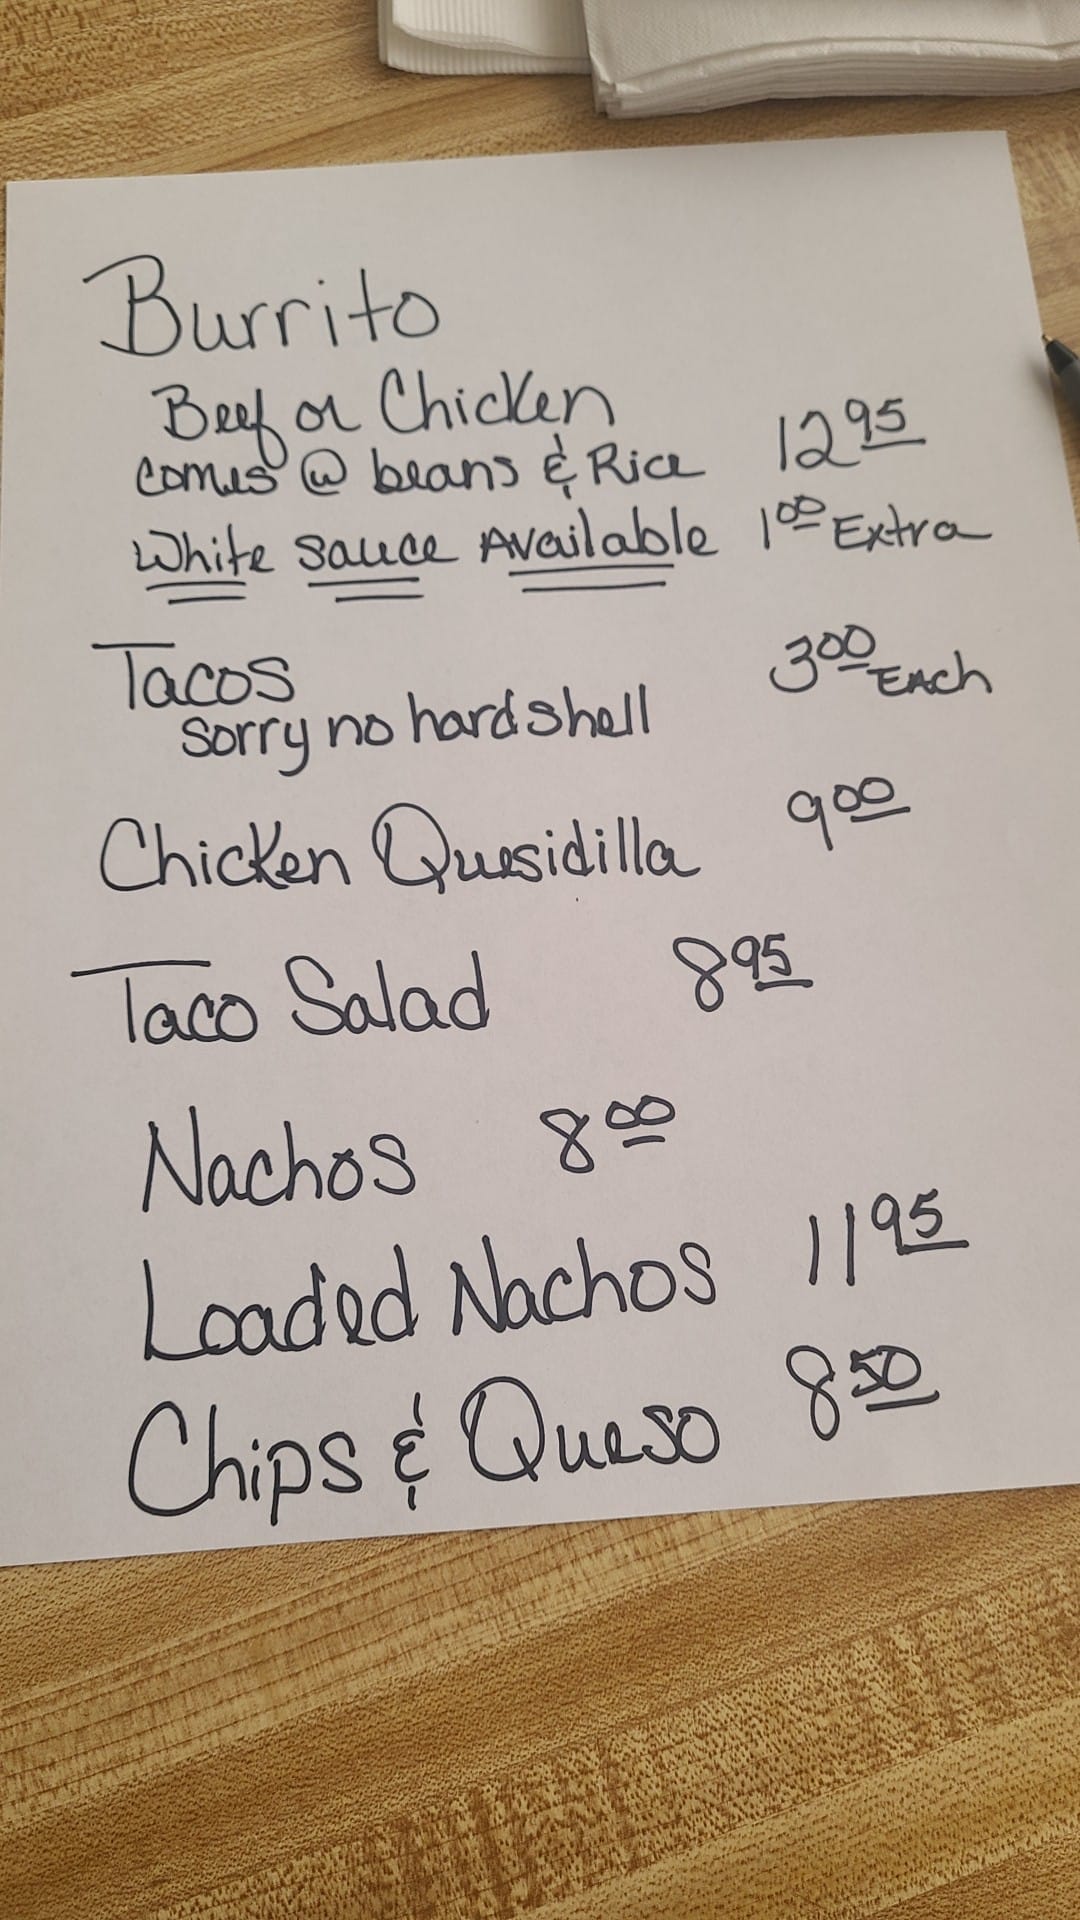 Burrito
Beef or Chicken
comes @ beans & Rice 12 95
White sauce Available 1 00 Extra
Tacos 3 00 EAch
sorry no hard shell
Chicken Quesidilla 9 00
Taco Salad 8 95
Nachos 8 00
Loaded Nachos 11 95
Chips & Queso 8 50